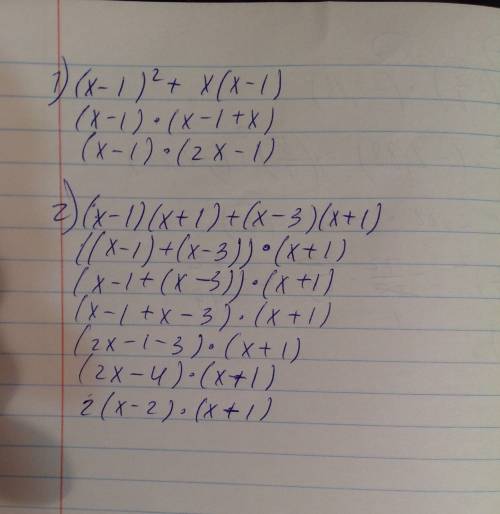 1) (x-1)² + x(x-1)
(x-1)·(x-1+x)
(x-1)·(2x-1)
2) (x-1)(x+1)+(x-3)(x+1)
((x-1)+(x-3))·(x+1)
(x-1+(x-3))·(x+1)
(x-1+x-3)·(x+1)
(2x-1-3)·(x+1)
(2x-4)·(x+1)
2(x-2)·(x+1)